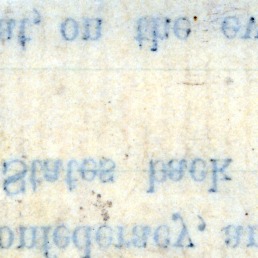 at, on the ev
States back
onfederacy, an